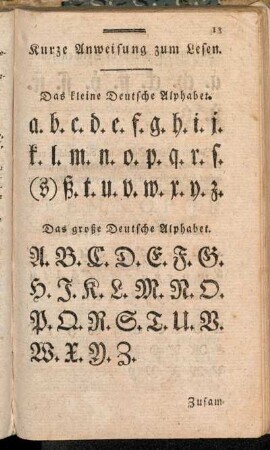 13
Kurze Anweisung zum Lesen.
Das kleine Deutsche Alphabet.
a. b. c. d. e. f. g. h. i. j.
k. l. m. n. o. p. q. r. ſ.
(s) ß. t. u. v. w. x. y. z.
Das große Deutsche Alphabet.
A. B. C. D. E. F. G.
H. J. K. L. M. N. O.
P. Q. R. S. T. U. V.
W. X. Y. Z.
Zusam-